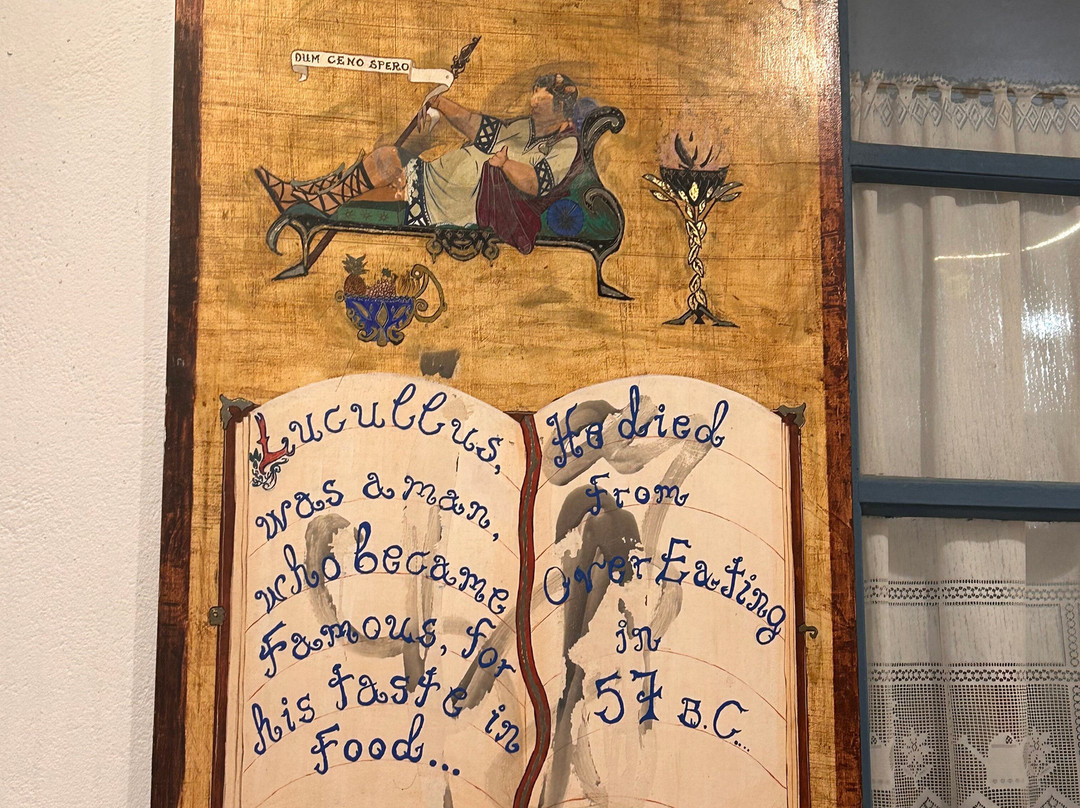 DUM CENO SPERO
Lucullus,
was a man,
who became
Famous, for
his taste in
Food...
He died
From
Over Eating
in
57 B.C....